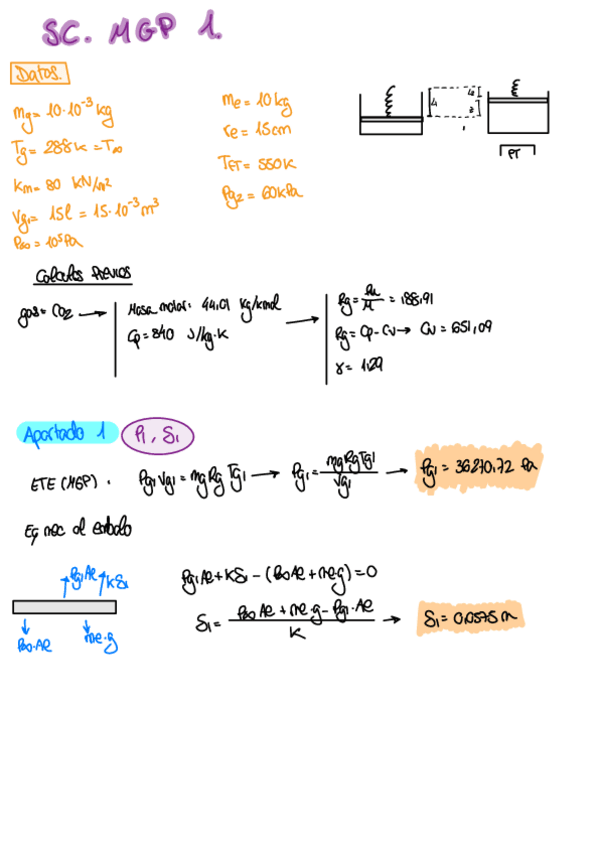 SC. MGP 1.
Datos.
mg = 10·10⁻³ kg
Tg = 288K = T∞
Km = 80 KN/m²
Vg1 = 15l = 15·10⁻³ m³
P∞ = 10⁵ Pa
me = 10 kg
re = 15 cm
TFT = 550K
Pg2 = 60kPa
PT
Cálculos Previos
gas = CO₂ → Masa molar: 44,01 kg/kmol
Cp = 840 J/kg·K
Rg = Ru/M = 188,91
Rg = Cp - Cv → Cv = 651,09
γ = 1,29
Apartado 1 P1, δ1
ETE (MGP). Pg1 Vg1 = mg Rg Tg1 → Pg1 = mg Rg Tg1 / Vg1 → Pg1 = 36270,72 Pa
Eq mec al estado
Pg1Ae
kδ1
P∞·Ae
me·g
Pg1 Ae + kδ1 - (P∞Ae + me g) = 0
δ1 = P∞ Ae + me·g - Pg1·Ae / K → δ1 = 0,0575 m